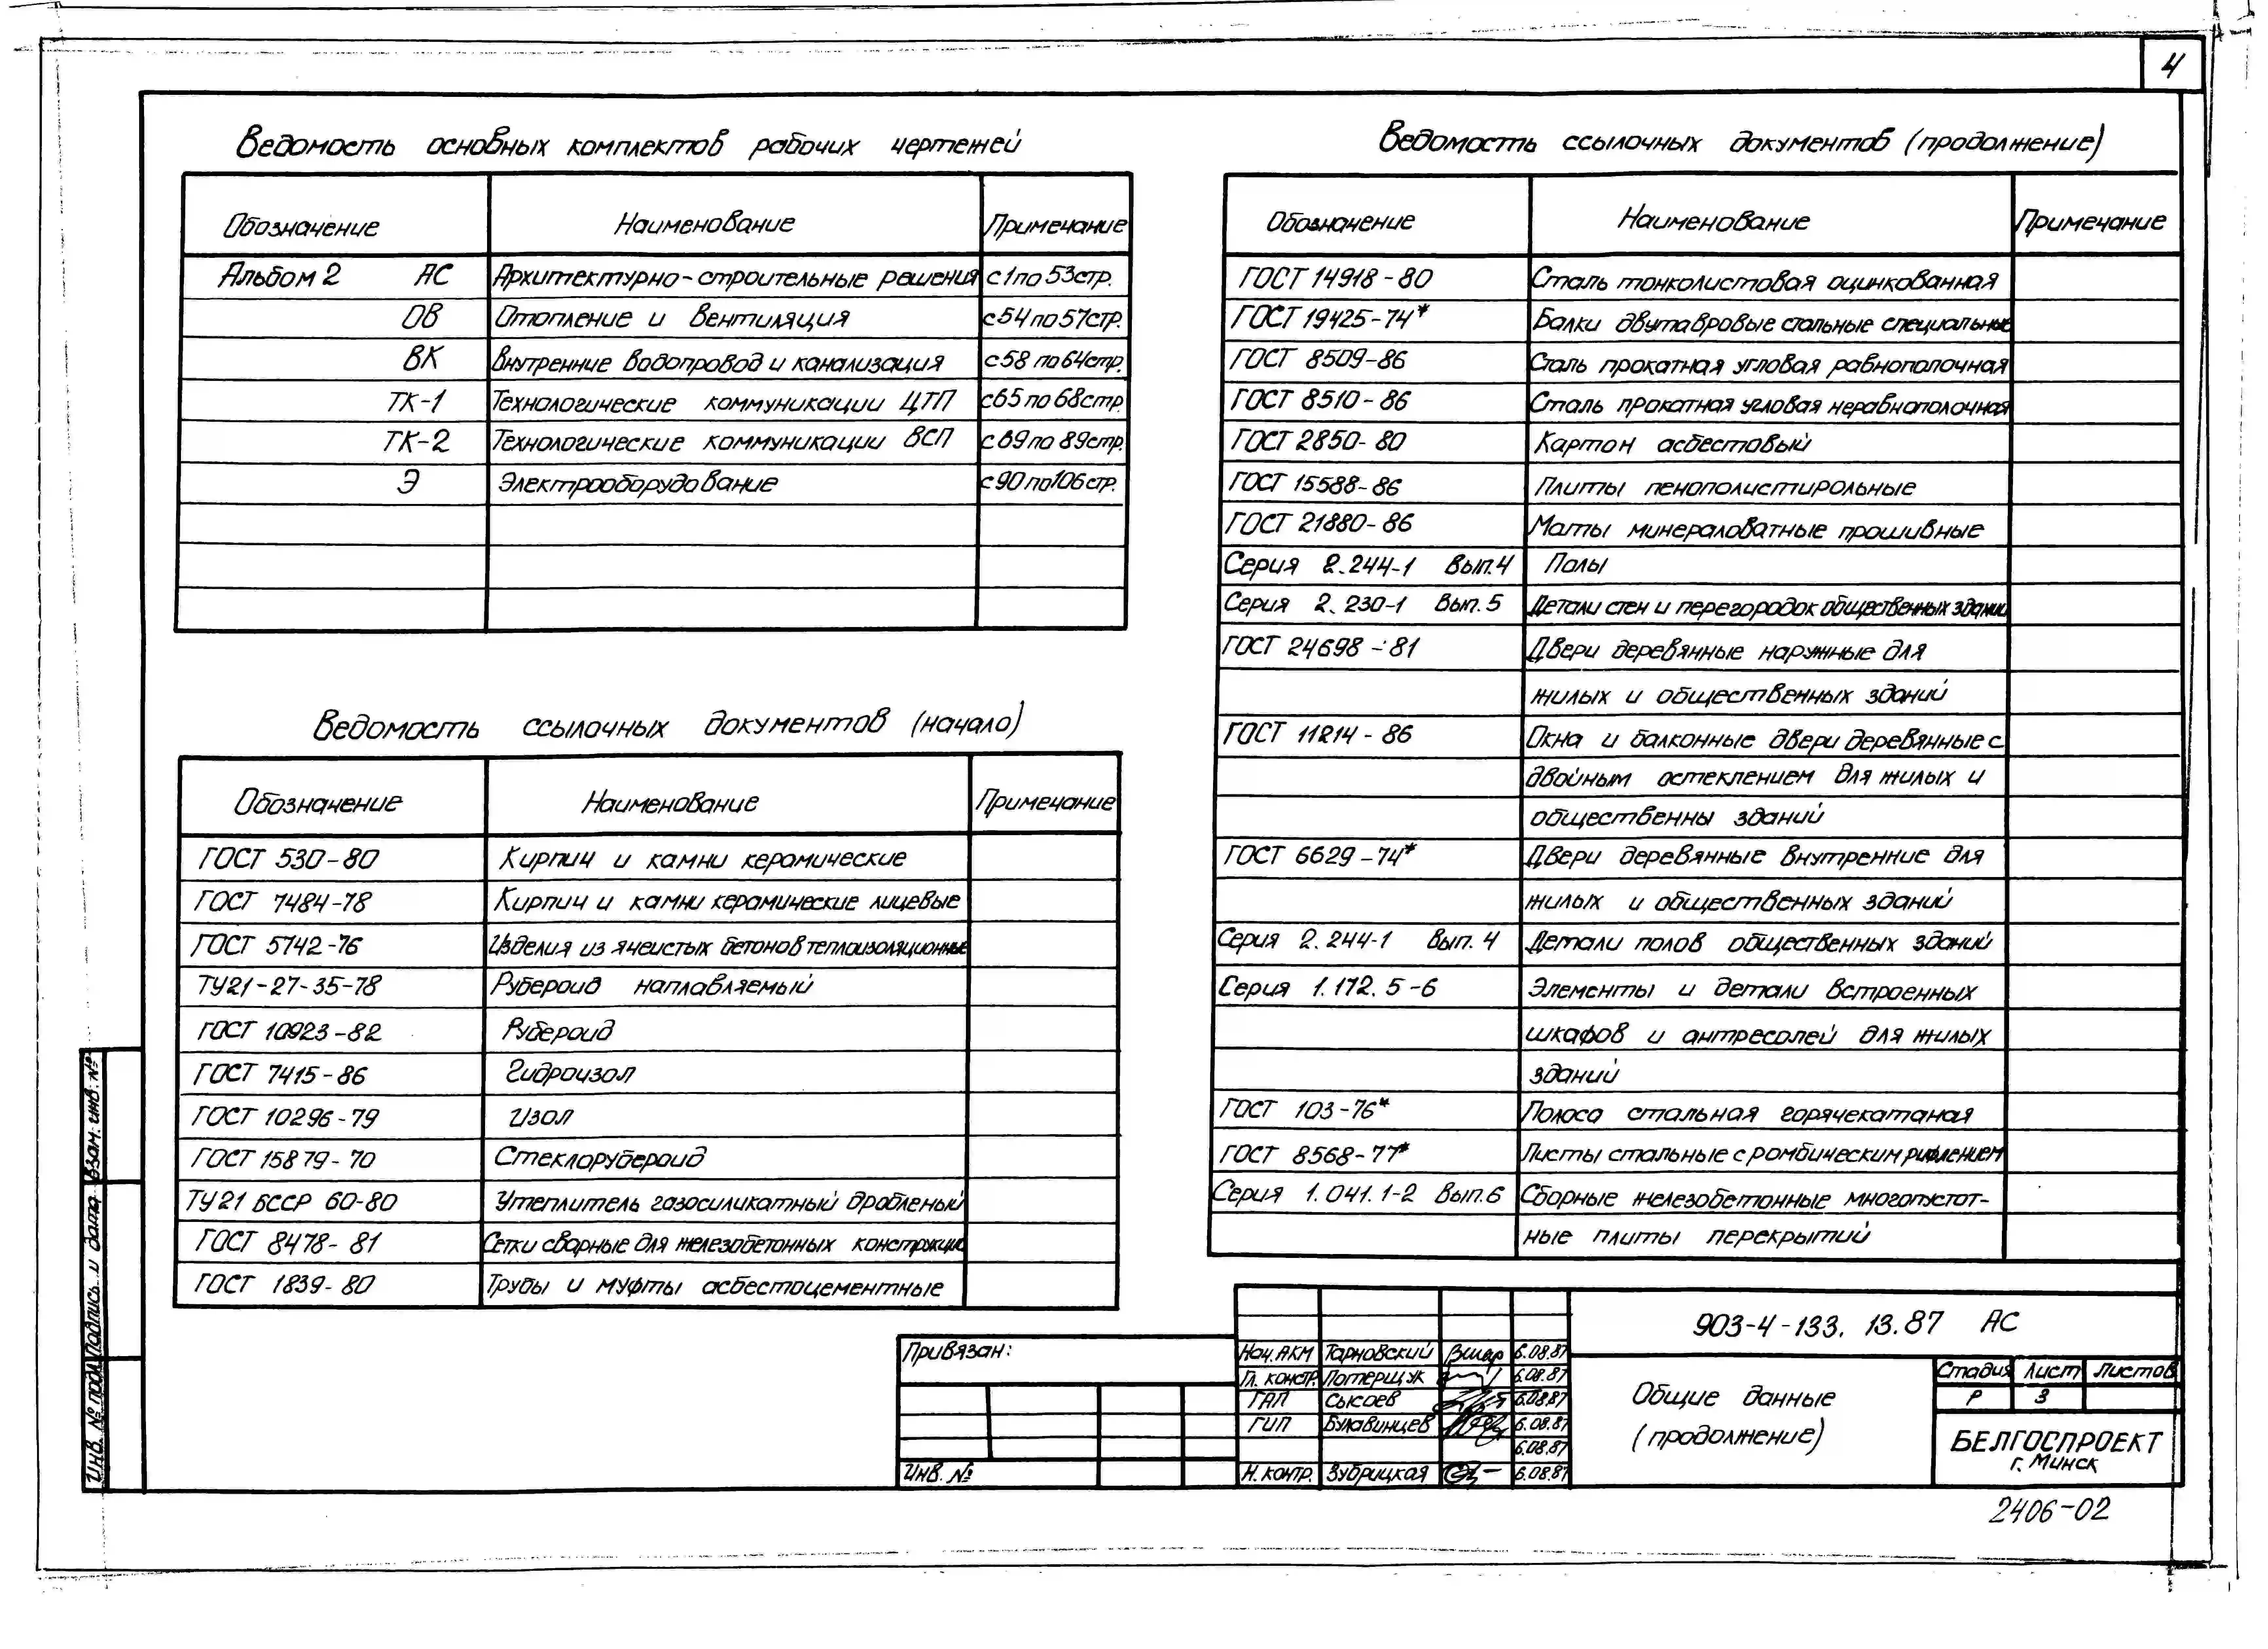 4
Ведомость основных комплектов рабочих чертежей
Обозначение Наименование Примечание
Альбом 2 АС Архитектурно-строительные решения с 1 по 53стр.
ОВ Отопление и вентиляция с 54 по 57стр.
ВК Внутренние водопровод и канализация с 58 по 64стр.
ТК-1 Технологические коммуникации ЦТП с 65 по 68стр
ТК-2 Технологические коммуникации ВСП с 69 по 89стр.
Э Электрооборудование с 90 по 106 стр.
Ведомость ссылочных документов (начало)
Обозначение Наименование Примечание
ГОСТ 530-80 Кирпич и камни керамические
ГОСТ 7484-78 Кирпич и камни керамические лицевые
ГОСТ 5742-76 Изделия из ячеистых бетонов теплоизоляционные
ТУ21-27-35-78 Рубероид наплавляемый
ГОСТ 10923-82 Рубероид
ГОСТ 7415-86 Гидроизол
ГОСТ 10296-79 Изол
ГОСТ 15879-70 Стеклорубероид
ТУ21 БССР 60-80 Утеплитель газосиликатный дробленый
ГОСТ 8478-81 Сетки сварные для железобетонных конструкций
ГОСТ 1839-80 Трубы и муфты асбестоцементные
Ведомость ссылочных документов (продолжение)
Обозначение Наименование Примечание
ГОСТ 14918-80 Сталь тонколистовая оцинкованная
ГОСТ 19425-74* Балки двутавровые стальные специальные
ГОСТ 8509-86 Сталь прокатная угловая равнополочная
ГОСТ 8510-86 Сталь прокатная угловая неравнополочная
ГОСТ 2850-80 Картон асбестовый
ГОСТ 15588-86 Плиты пенополистирольные
ГОСТ 21880-86 Маты минераловатные прошивные
Серия 2.244-1 Вып.4 Полы
Серия 2.230-1 Вып.5 Детали стен и перегородок общественных зданий
ГОСТ 24698-81 Двери деревянные наружные для
жилых и общественных зданий
ГОСТ 11214-86 Окна и балконные двери деревянные с
двойным остеклением для жилых и
общественны зданий
ГОСТ 6629-74* Двери деревянные внутренние для
жилых и общественных зданий
Серия 2.244-1 Вып. 4 Детали полов общественных зданий
Серия 1.172.5-6 Элементы и детали встроенных
шкафов и антресолей для жилых
зданий
ГОСТ 103-76* Полоса стальная горячекатаная
ГОСТ 8568-77* Листы стальные с ромбическим рифлением
Серия 1.041.1-2 Вып.6 Сборные железобетонные многопустот-
ные плиты перекрытий
Взам. инв. №
Подпись и дата
Инв. № подл.
Привязан:
Инв. №
Нач. АКМ Тарновский 6.08.87
Гл. констр. Потерщук 6.08.87
ГАП Сысоев 6.08.87
ГИП Булавинцев 6.08.87
6.08.87
Н. контр. Зубрицкая 6.08.87
903-4-133.13.87 АС
Общие данные
(продолжение)
Стадия Лист Листов
Р 3
БЕЛГОСПРОЕКТ
г. Минск
2406-02